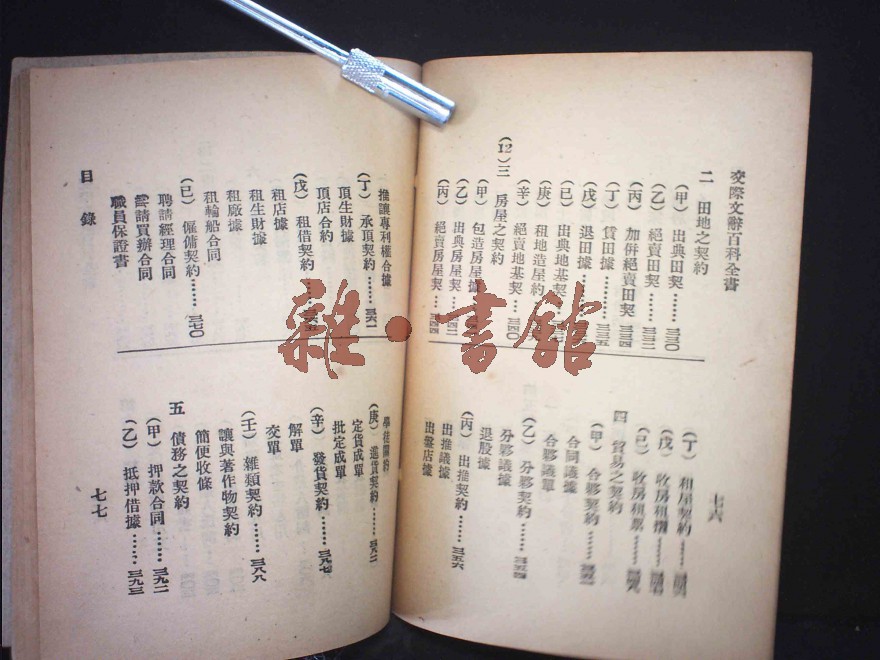 交際文辭百科全書
二 田地之契約
（甲）出典田契……三三〇
（乙）絕賣田契……三三二
（丙）加併絕賣田契……三三四
（丁）賃田據……三三五
（戊）退田據
（己）出典地基契
（庚）租地造屋約
（辛）絕賣地基契…三四〇
(12) 三 房屋之契約
（甲）包造房屋據
（乙）出典房屋契
（丙）絕賣房屋契…三四四
（丁）租屋契約
（戊）收房租摺
（己）收房租票
四 貿易之契約
（甲）合夥契約
合同議據
合夥議單
（乙）分夥契約……三五四
分夥議據
退股據
（丙）出推契約……三五六
出推議據
出盤店據
七六
推讓專利權合據
（丁）承頂契約……三六一
頂生財據
頂店合約
（戊）租借契約……三六五
租店據
租生財據
租廠據
租輪船合同
（己）僱傭契約……三七〇
聘請經理合同
雲請買辦合同
職員保證書
目錄
學徒關約
（庚）進貨契約
定貨成單
批定成單
（辛）發貨契約……三九七
解單
交單
（壬）雜類契約……三八八
讓與著作物契約
簡便收條
五 債務之契約
（甲）押款合同……三九二
（乙）抵押借據……三九三
七七
雜·書館